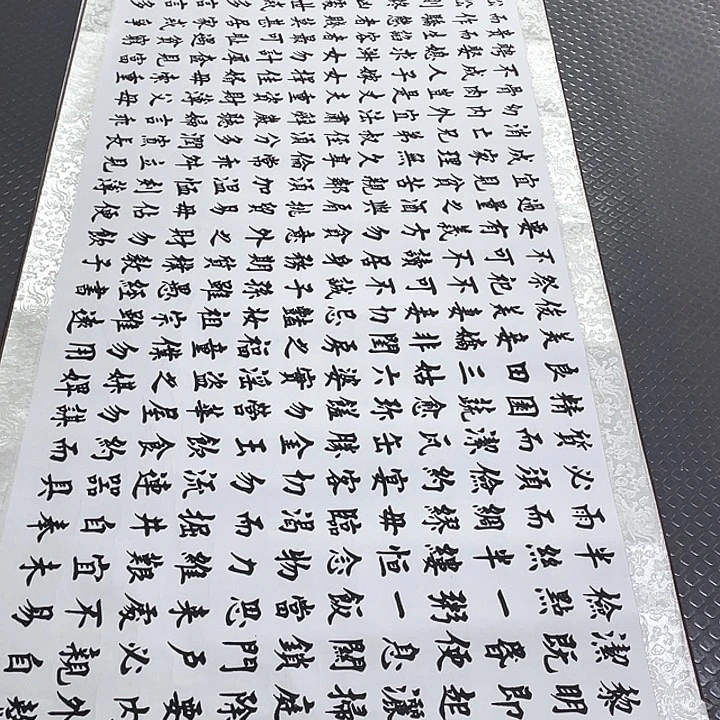 黎明即起灑掃庭除要內外
潔既昏便息關鎖門戶必親自
檢點一粥一飯當思來處不易
半絲半縷恒念物力維艱宜未
雨而綢繆毋臨渴而掘井自奉
必須儉約宴客切勿流連器具
質而潔瓦缶勝金玉飲食約而
精園蔬愈珍饈勿營華屋勿謀
良田三姑六婆實淫盜之媒婢
美妾嬌非閨房之福童僕勿用
俊美妻妾切忌豔妝祖宗雖遠
祭祀不可不誠子孫雖愚經書
不可不讀居身務期質樸教子
要有義方勿貪意外之財勿飲
過量之酒與肩挑貿易毋佔便
宜見貧苦親鄰須加溫恤刻薄
成家理無久享倫常乖舛立見
消亡兄弟叔姪須分多潤寡長
幼內外宜法肅辭嚴聽婦言乖
骨肉豈是丈夫重資財薄父母
不成人子嫁女擇佳婿毋索重
聘娶媳求淑女勿計厚奩見富
貴而生諂容者最可恥遇貧